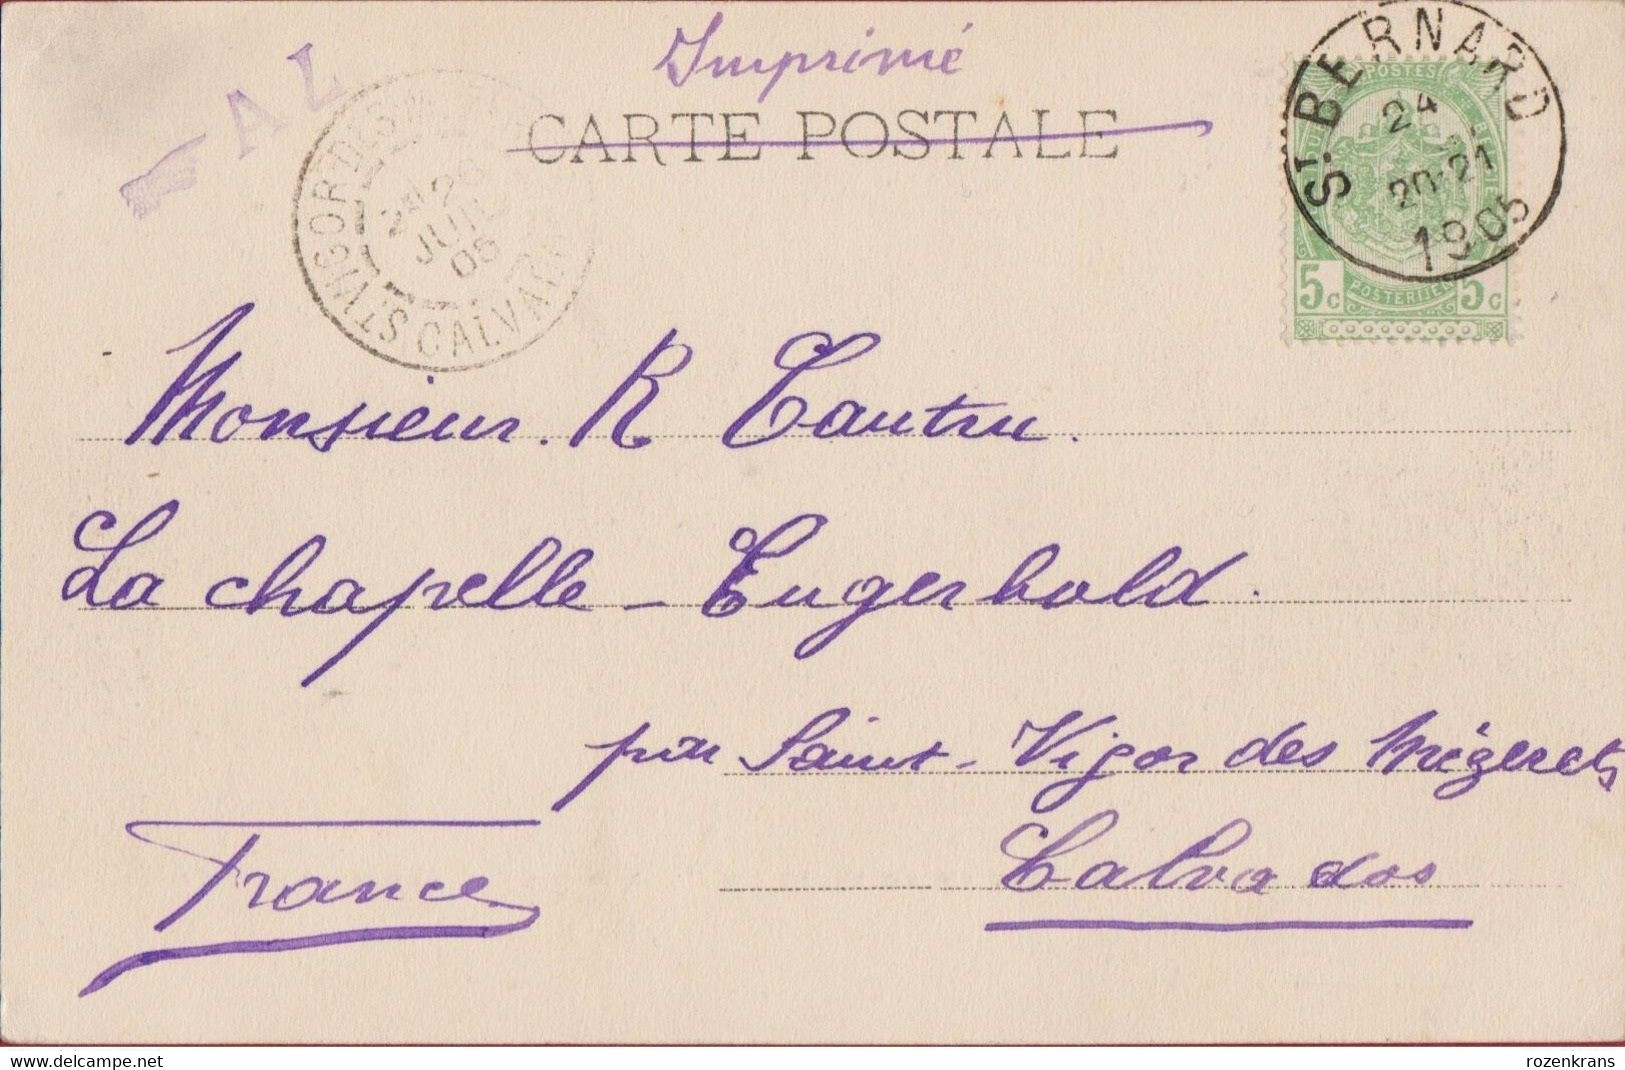 Imprimé
CARTE POSTALE
AL
ST VIGOR DES M CALVA
26
JUIL
05
ST. BERNARD
24
20-21
1905
POSTES
POSTERIJEN
5c 5c
Monsieur. R Tautru.
La chapelle - Engerbold.
par Saint-Vigor des Mézerets
Calvados
France
delcampe.net
rozenkrans